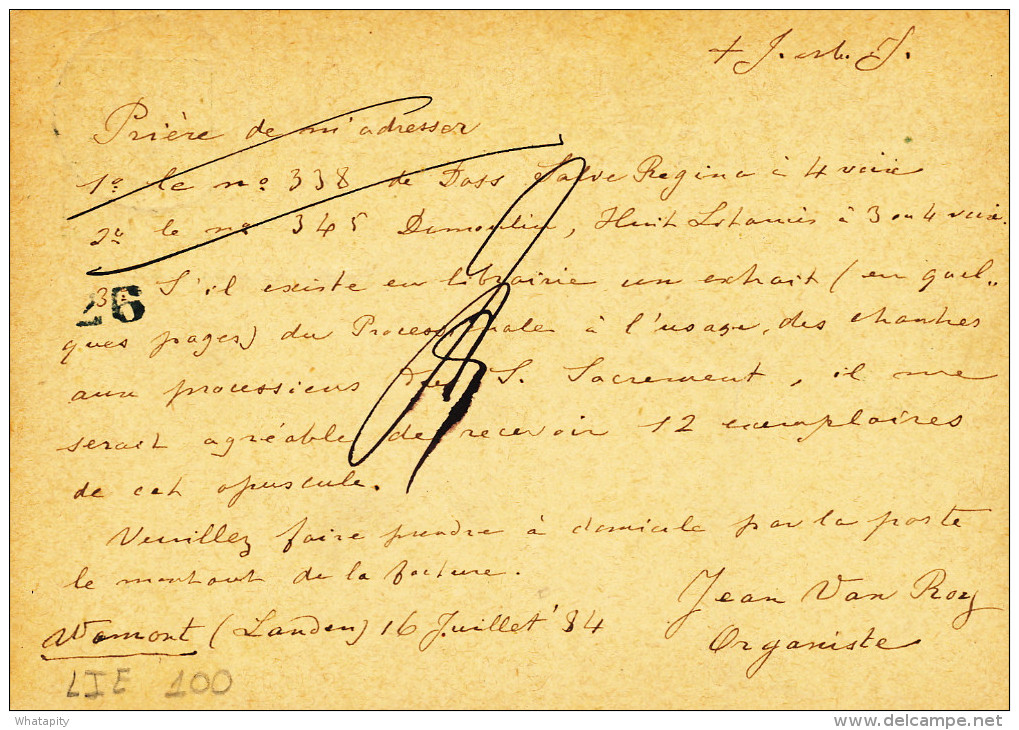 + J. et. J.
Prière de m'adresser
1º le nº 338 de Doss Salve Regina à 4 voix
2º le nº 345 Dumoulin, Huit Litanies à 3 ou 4 voix.
3º S'il existe en librairie un extrait (en quel„
26
ques pages) du Processionale à l'usage des chantres
aux processions du S. Sacrement, il me
serait agréable de recevoir 12 exemplaires
de cet opuscule.
Veuillez faire prendre à domicile par la poste
le montant de la facture.
Jean Van Roy
Wamont (Landen) 16 Juillet '84
Organiste
LIE 100
Whatapity
www.delcampe.net